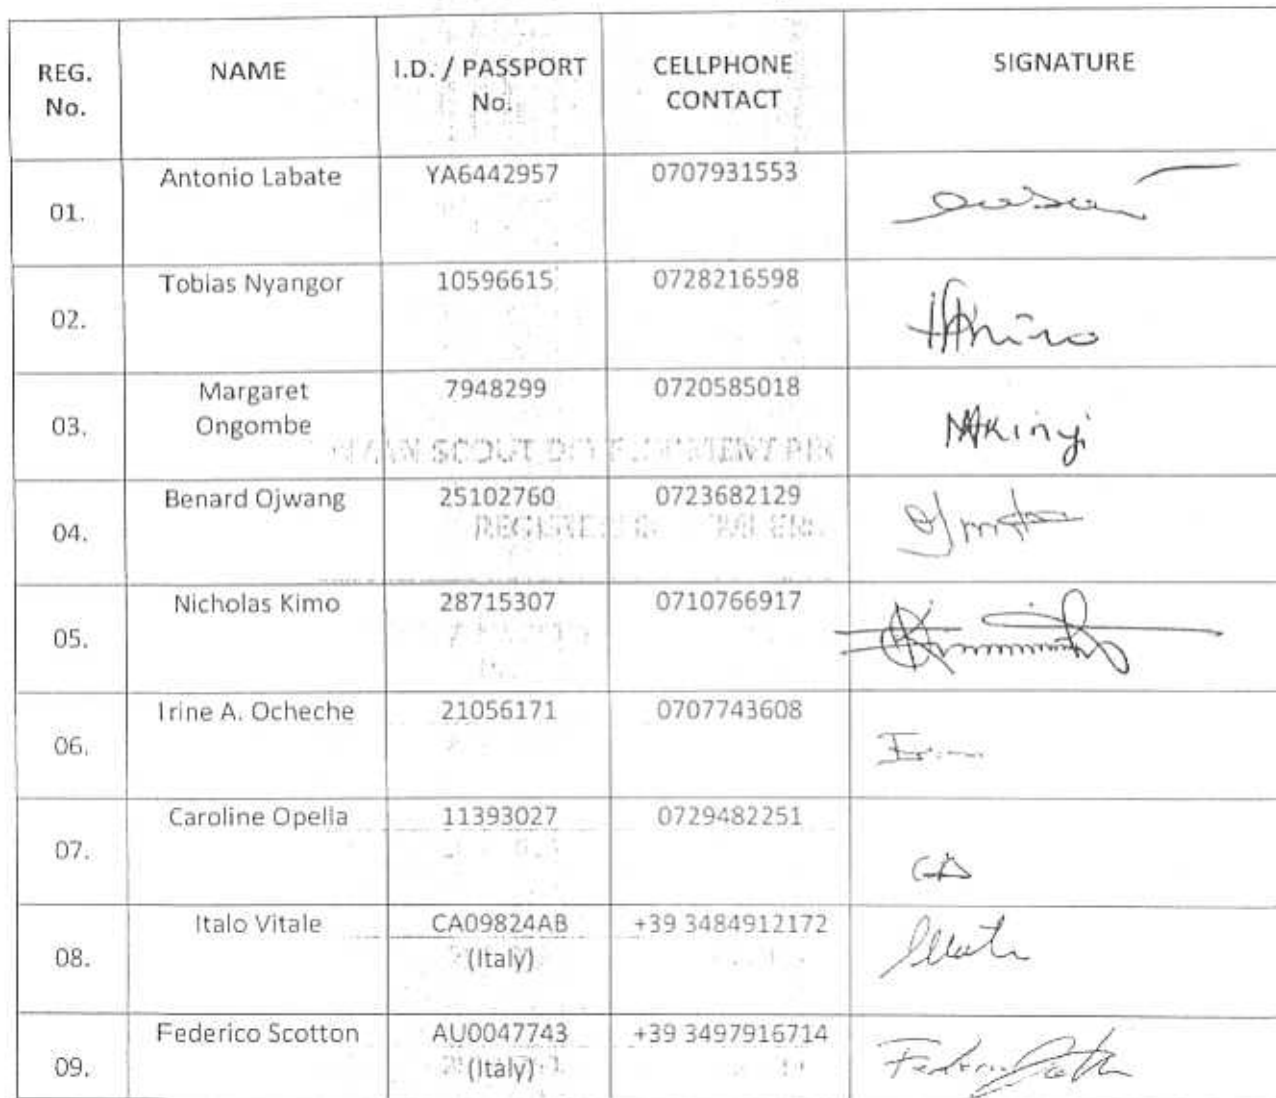 REG. No. NAME I.D. / PASSPORT No. CELLPHONE CONTACT SIGNATURE
01. Antonio Labate YA6442957 0707931553
02. Tobias Nyangor 10596615 0728216598
03. Margaret Ongombe 7948299 0720585018 MAkinyi
04. Benard Ojwang 25102760 0723682129
05. Nicholas Kimo 28715307 0710766917
06. Irine A. Ocheche 21056171 0707743608
07. Caroline Opella 11393027 0729482251
08. Italo Vitale CA09824AB (Italy) +39 3484912172
09. Federico Scotton AU0047743 (Italy) +39 3497916714